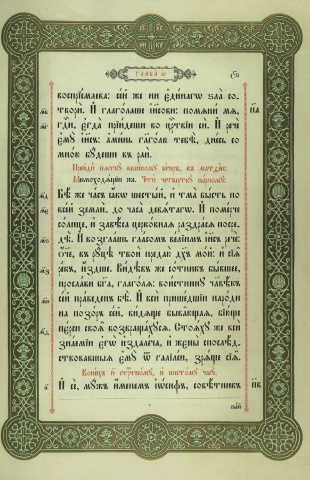 ГЛАВА
воспрїѧхова: се́й же ни є҆ди́нагѡ ѕла̀ со-
творѝ. И҆ глаго́лаше і҆и҃сови: помѧнѝ мѧ̀,
гдⷭ҇и, є҆гда̀ прїи́деши во црⷭ҇твїи сѝ. И҆ речѐ
є҆мꙋ̀ і҆и҃съ: а҆ми́нь глаго́лю тебѣ̀, дне́сь со
мно́ю бꙋ́деши въ раѝ.
Бѣ́ же ча́съ ꙗ҆́кѡ шесты́й, и҆ тма̀ бы́сть по
все́й землѝ, до часа̀ девѧ́тагѡ. И҆ поме́рче
со́лнце, и҆ завѣ́са церко́внаѧ раздра́сѧ посре-
дѣ̀. И҆ возгла́шь гла́сомъ ве́лїимъ і҆и҃съ речѐ:
ѻ҆́ч҃е, въ рꙋ́цѣ твоѝ преда́ю дꙋ́хъ мо́й: и҆ сїѧ̑
ре́къ, и҆́здше. Ви́дѣвъ же со́тникъ бы́вшее,
просла́ви бг҃а, глаго́лѧ: вои́стиннꙋ человѣ́къ
се́й првⷣенъ бѣ̀. И҆ всѝ прише́дшїи наро́ди
на позо́ръ се́й, ви́дѧще быва̑ющаѧ, бїю́ще
пе́рси своѧ̑ возвраща́хꙋсѧ. Стоѧ́хꙋ же всѝ
зна́емїи є҆гѡ̀ и҆здале́ча, и҆ жєны̀ спослѣ́д-
ствовавшыѧ є҆мꙋ̀ ѿ галїле́и, зрѧ́ще сїѧ̑.
И҆ сѐ, мꙋ́жъ и҆́менемъ і҆ѡ́сифъ, совѣ́тникъ